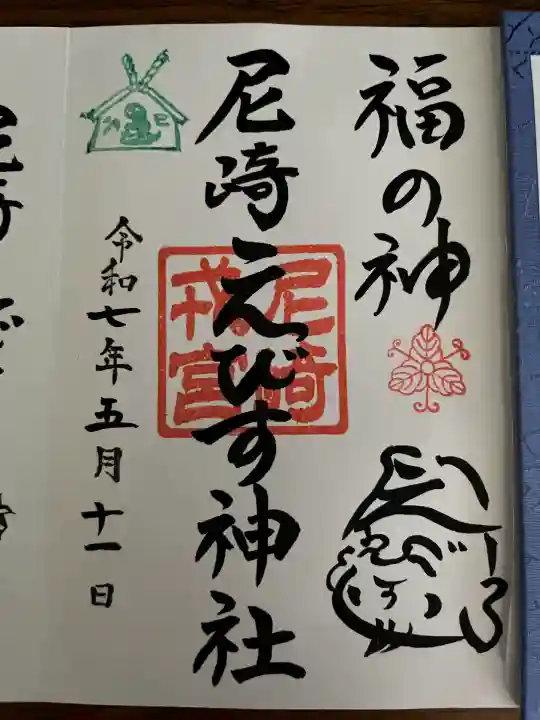 福の神
尼崎えびす神社
尼崎
戎宮
令和七年五月十一日